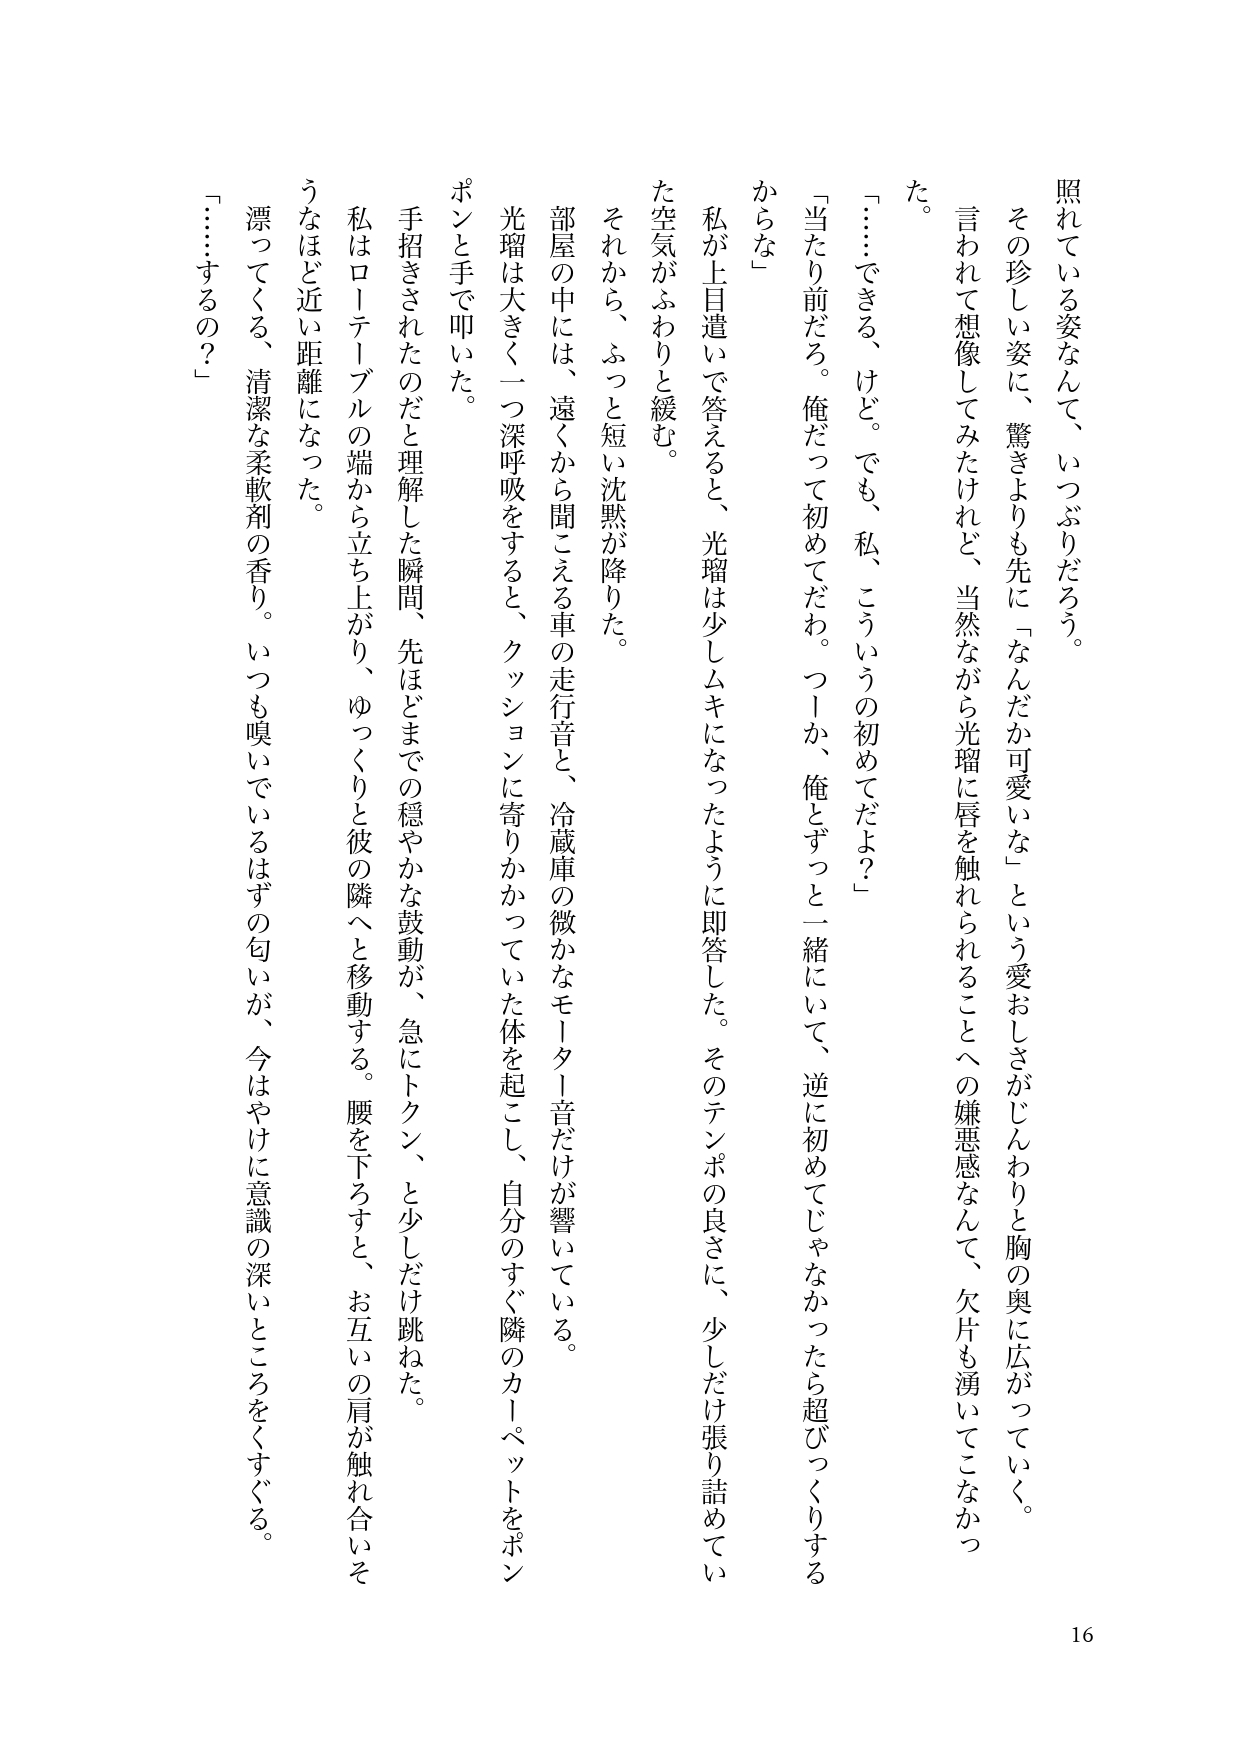 照れている姿なんて、いつぶりだろう。
　その珍しい姿に、驚きよりも先に「なんだか可愛いな」という愛おしさがじんわりと胸の奥に広がっていく。
　言われて想像してみたけれど、当然ながら光瑠に唇を触れられることへの嫌悪感なんて、欠片も湧いてこなかっ
た。
「……できる、けど。でも、私、こういうの初めてだよ？」
「当たり前だろ。俺だって初めてだわ。つーか、俺とずっと一緒にいて、逆に初めてじゃなかったら超びっくりする
からな」
　私が上目遣いで答えると、光瑠は少しムキになったように即答した。そのテンポの良さに、少しだけ張り詰めてい
た空気がふわりと緩む。
　それから、ふっと短い沈黙が降りた。
　部屋の中には、遠くから聞こえる車の走行音と、冷蔵庫の微かなモーター音だけが響いている。
　光瑠は大きく一つ深呼吸をすると、クッションに寄りかかっていた体を起こし、自分のすぐ隣のカーペットをポン
ポンと手で叩いた。
　手招きされたのだと理解した瞬間、先ほどまでの穏やかな鼓動が、急にトクン、と少しだけ跳ねた。
　私はローテーブルの端から立ち上がり、ゆっくりと彼の隣へと移動する。腰を下ろすと、お互いの肩が触れ合いそ
うなほど近い距離になった。
　漂ってくる、清潔な柔軟剤の香り。いつも嗅いでいるはずの匂いが、今はやけに意識の深いところをくすぐる。
「……するの？」
16